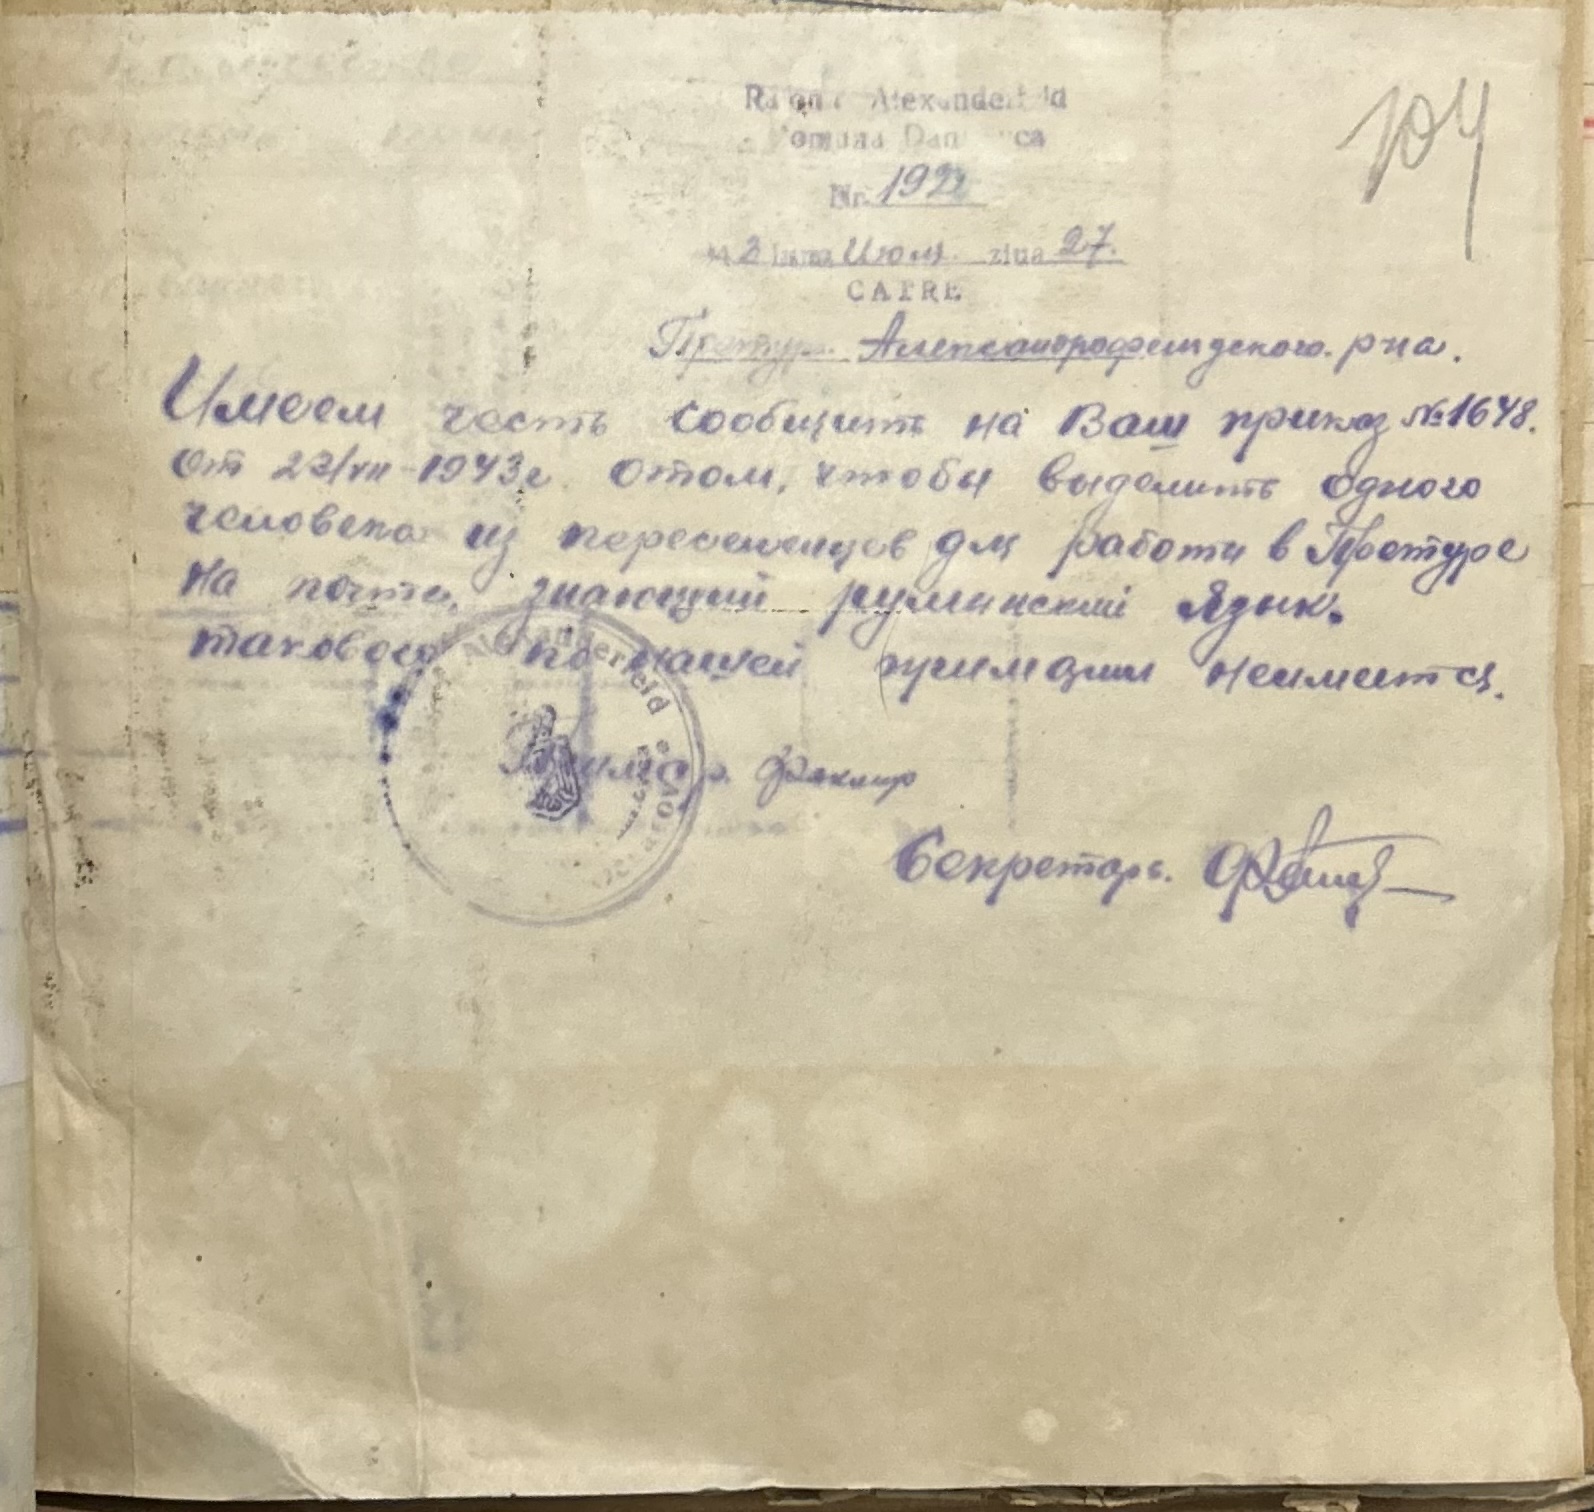 104
Raion Alexanderfeld
Comuna Dan ca
Nr. 192
1943 luna Июля ziua 27.
CATRE
Претур. Александрофельдского. р-на.
Имеем честь сообщить на Ваш приказ №1648.
от 23/VII-1943г. отом, чтобы выделить одного
человека из переселенцев для работы в Претуре
на почте, знающий румынский язык.
такового по нашей примарии неимеится.
Alexanderfeld
Примар.
Секретарь.